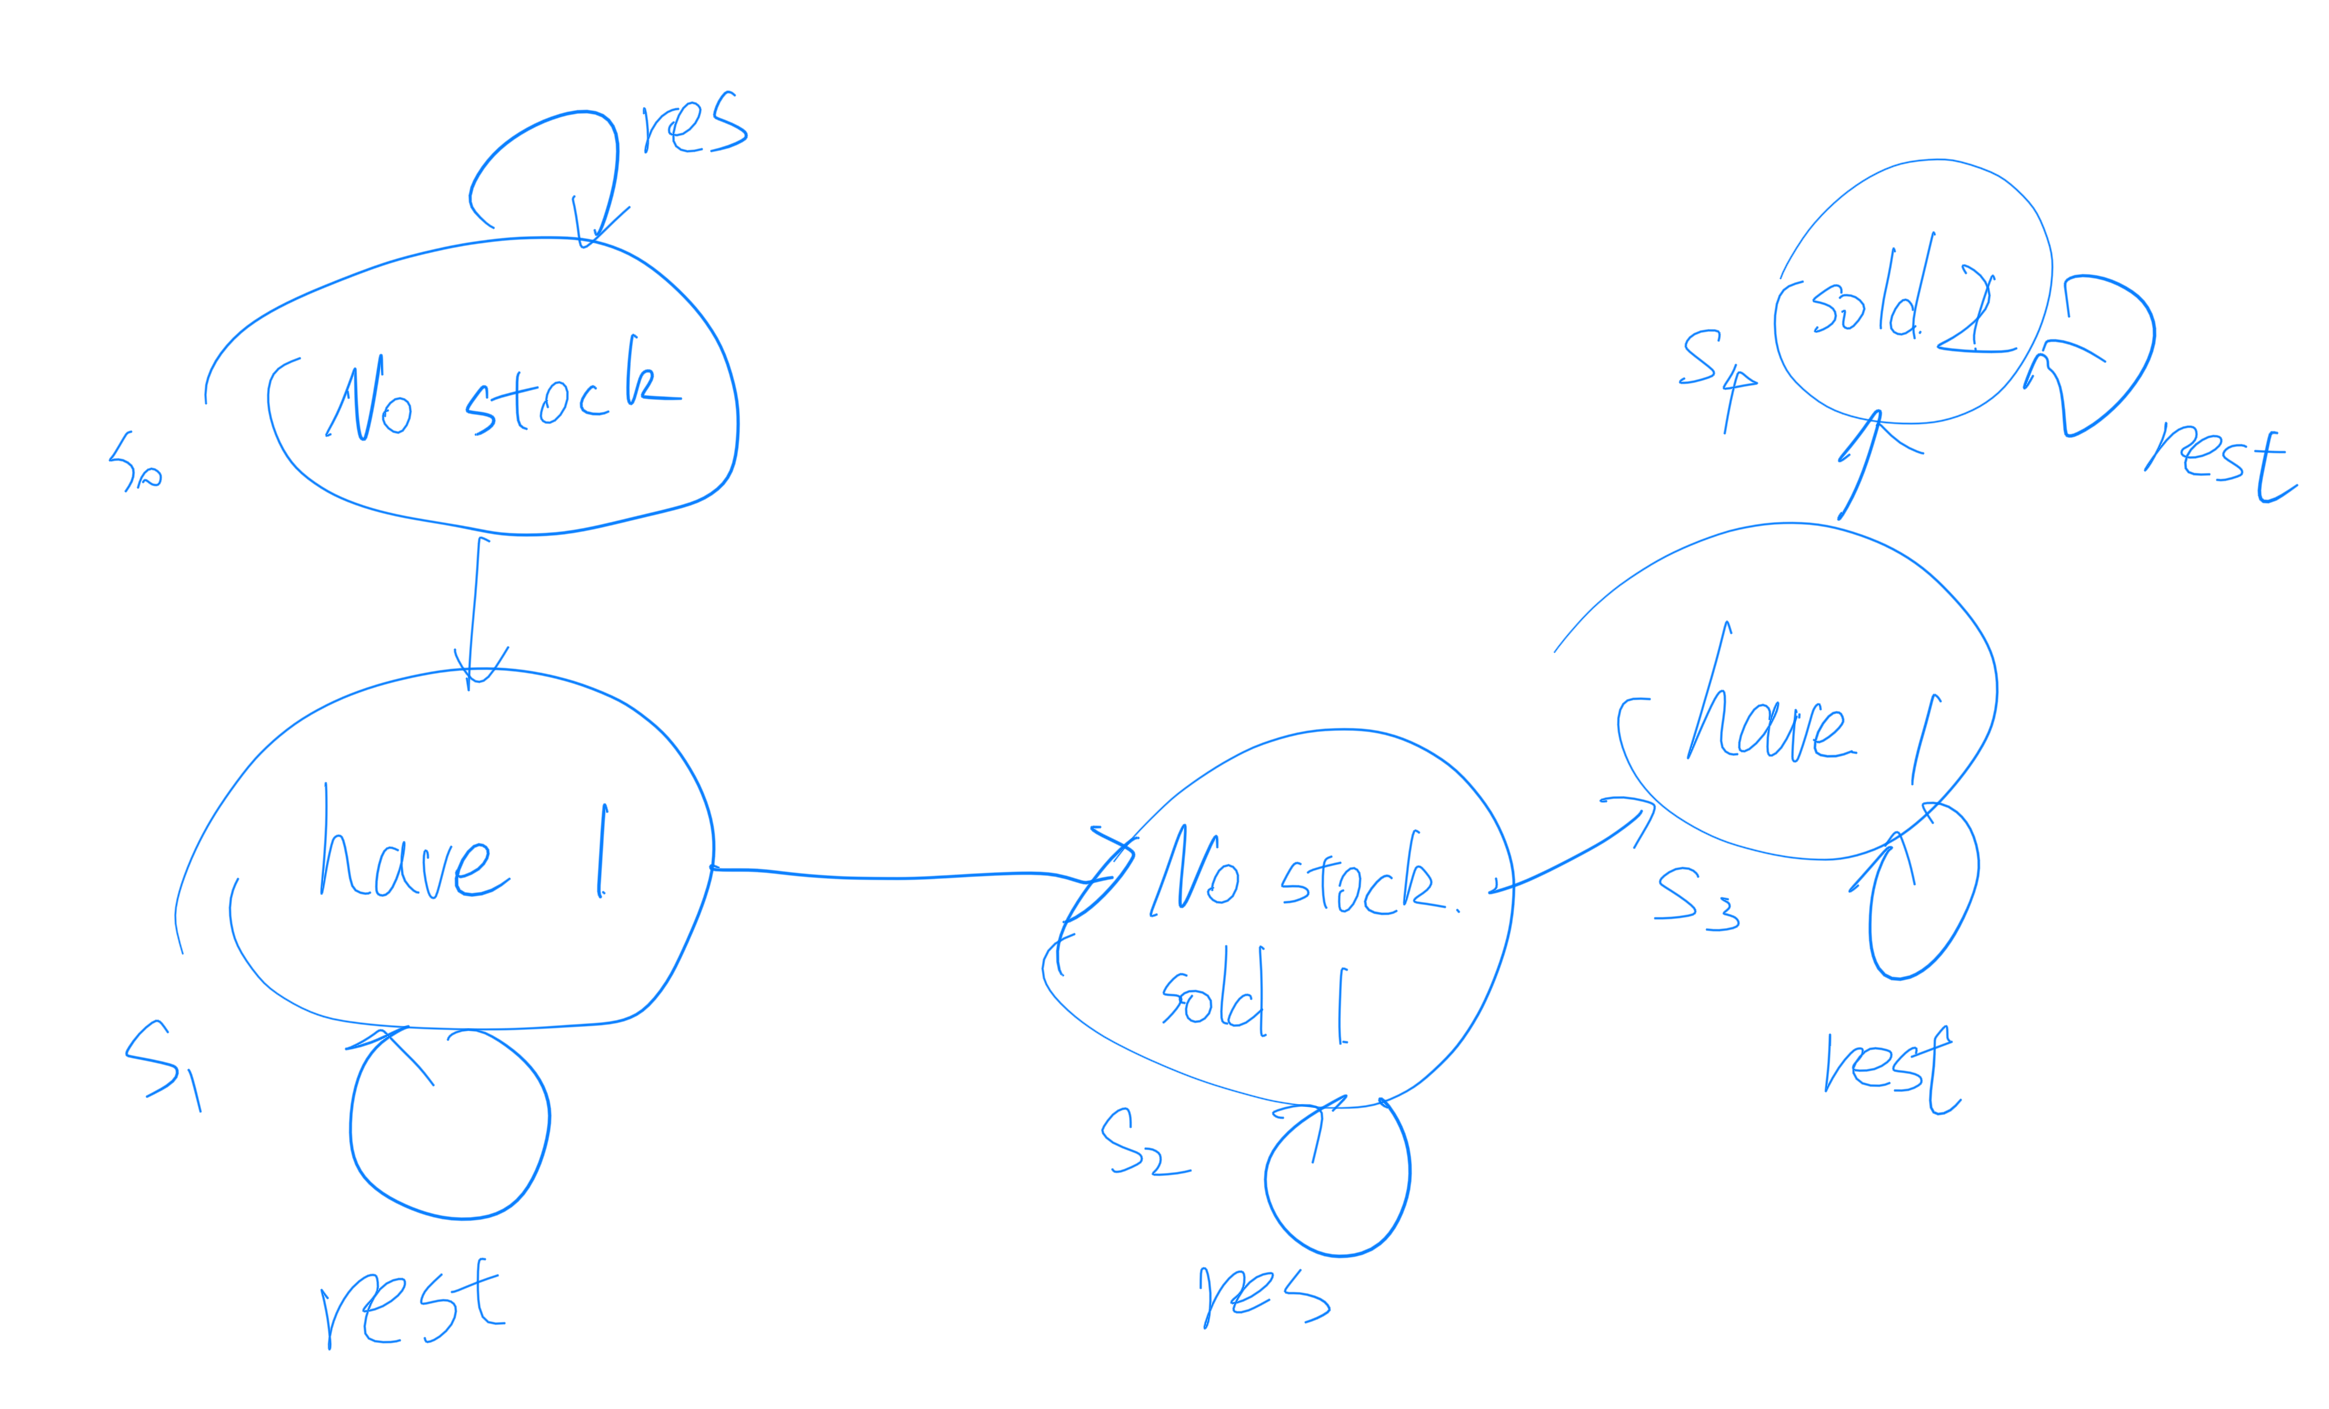 res
No stock
S0
have 1
S1
rest
No stock.
sold 1
S2
res
have 1
S3
rest
sold 2
S4
rest